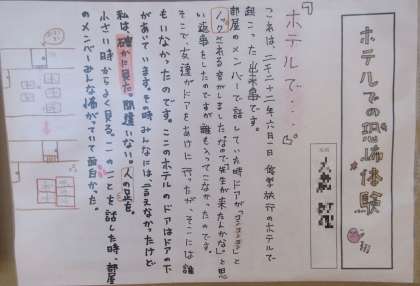 ホテルでの恐怖体験
『ホテルで・・・』
これは、二千二十二年六月一日 修学旅行のホテルで
起こった出来事です。
部屋のメンバーで話していた時ドアが「コンコンコン」と
ノックされる音がしましたなので「先生が来たんかな」と思
い返事をしたのですが誰も入ってこなかったのです。
そこで、友達がドアをあけに行ったが、そこには誰
もいなかったのです。ここのホテルのドアはドアの下
があいています。その時みんなには言えなかったけど
私は、確かに見た。間違いない。人の足を。
小さい時からよく見る。このことを話した時、部屋
のメンバーみんな怖がっていて面白かった。